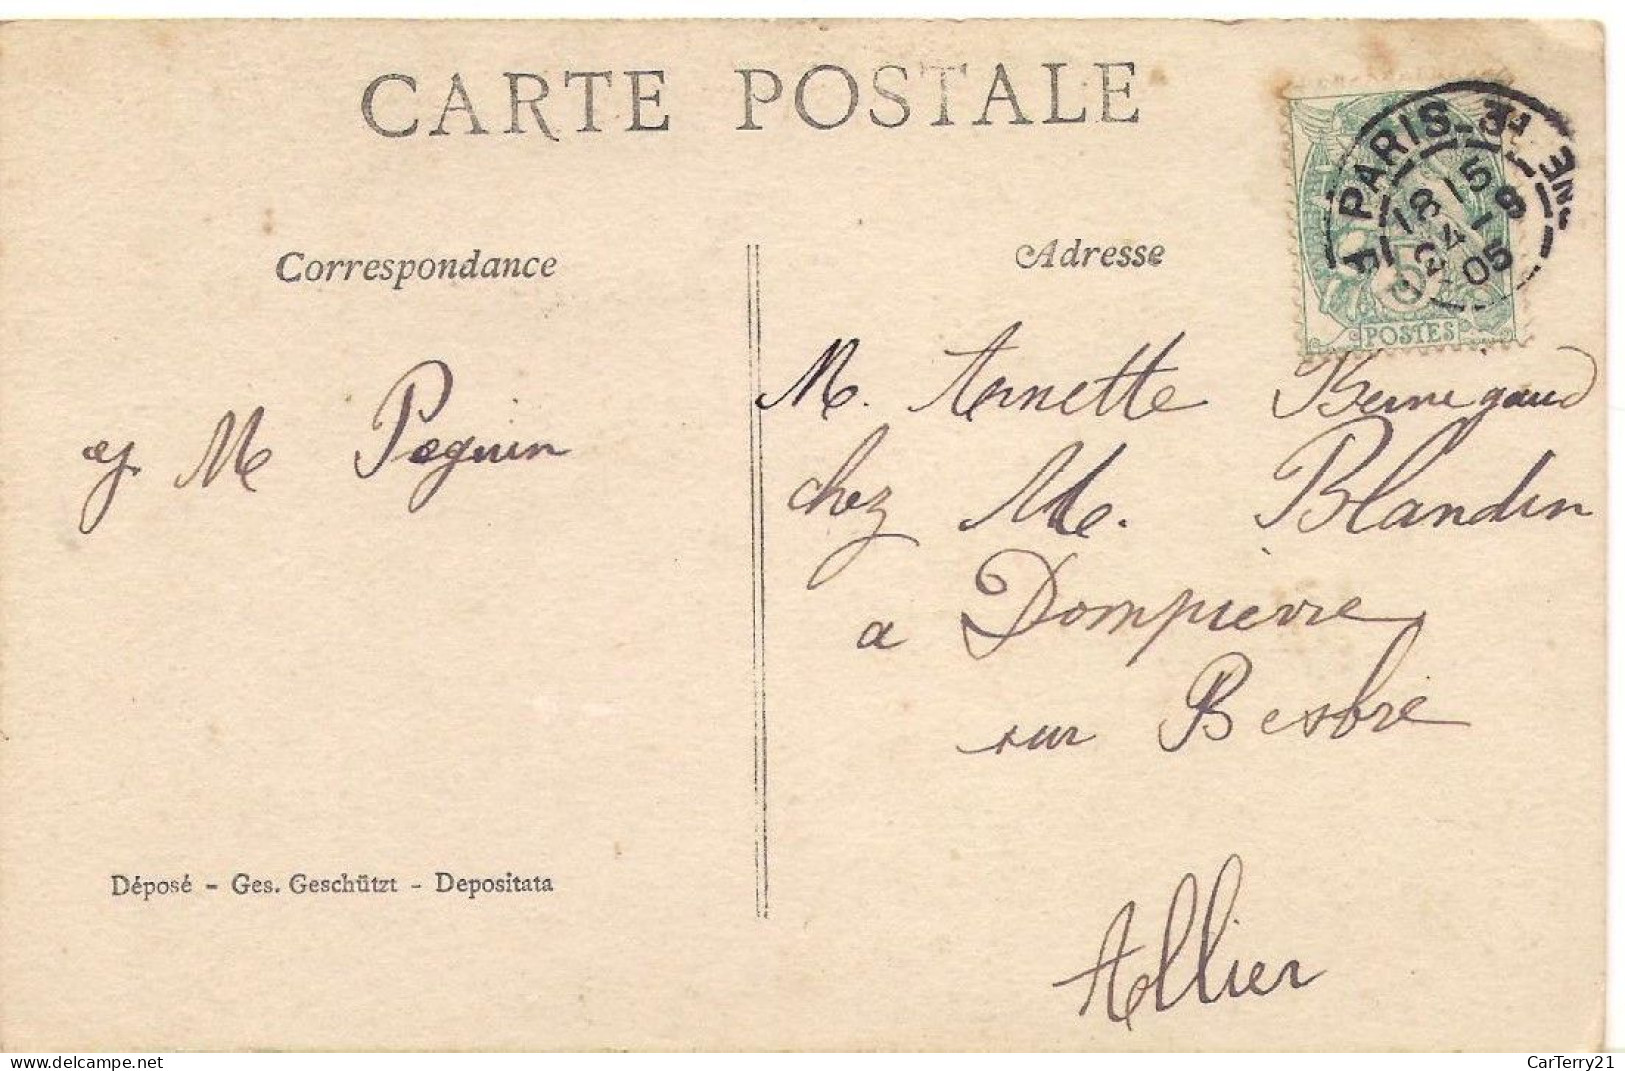 CARTE POSTALE
Correspondance
Adresse
PARIS
18 15
4 - 8
05
5
POSTES
M. Annette
chez M. Blandin
a Dompierre
sur Besbre
Allier
M Peguin
Déposé - Ges. Geschützt - Depositata
CarTerry21
www.delcampe.net